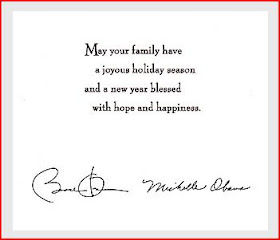 May your family have
a joyous holiday season
and a new year blessed
with hope and happiness.
Michelle Obama